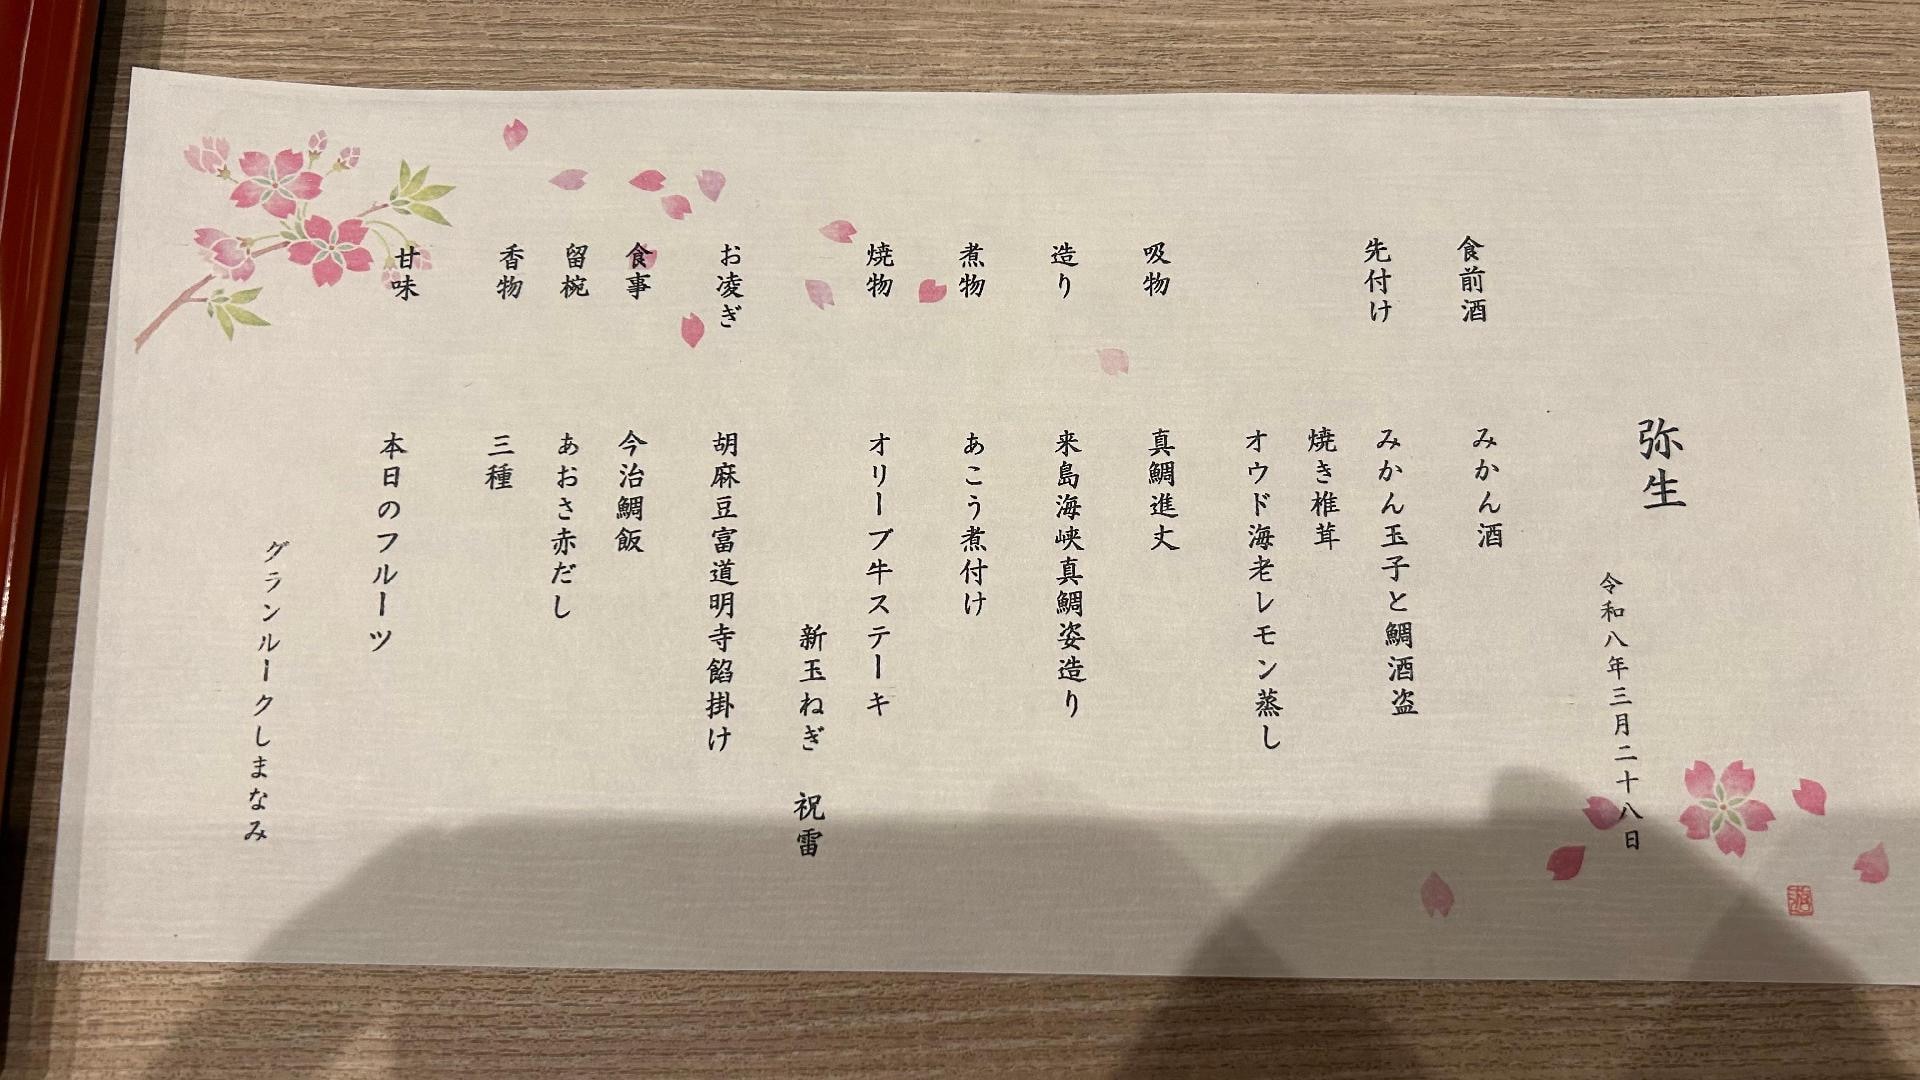 弥生
令和八年三月二十八日
食前酒　みかん酒
先付け　みかん玉子と鯛酒盗
焼き椎茸
オウド海老レモン蒸し
吸物　真鯛進丈
造り　来島海峡真鯛姿造り
煮物　あこう煮付け
焼物　オリーブ牛ステーキ
新玉ねぎ　祝雷
お凌ぎ　胡麻豆富道明寺餡掛け
食事　今治鯛飯
留椀　あおさ赤だし
香物　三種
甘味　本日のフルーツ
グランルークしまなみ